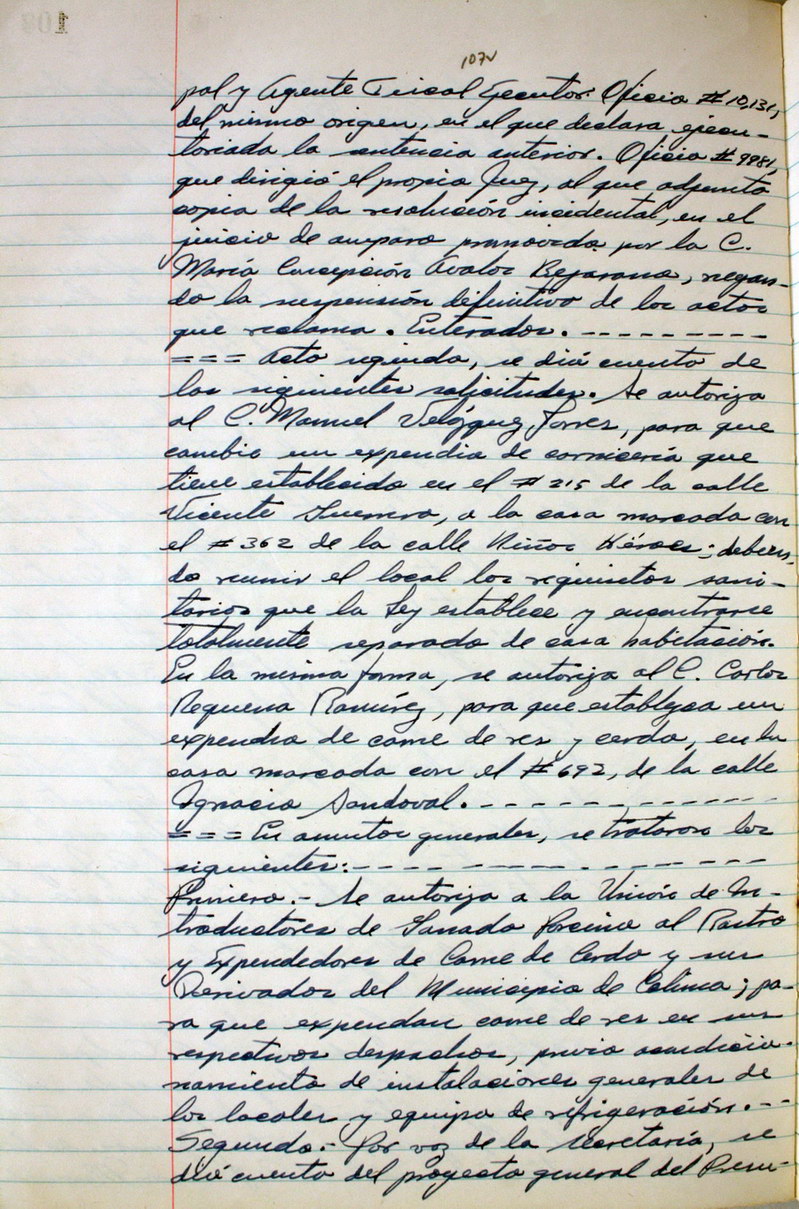 107v
pal y Agente Fiscal Ejecutor. Oficio # 10,131,
del mismo origen, en el que declara ejecu-
toriada la sentencia anterior. Oficio # 9981,
que dirigió el propio Juez, al que adjunta
copia de la resolución incidental, en el
juicio de amparo promovido por la C.
María Concepción Avalos Bejarano, negan-
do la suspensión definitiva de los actos
que reclama. Enterados. - - - - - - - - -
= = = Acto seguido, se dió cuenta de
las siguientes solicitudes. Se autoriza
al C. Manuel Velázquez Torres, para que
cambie un expendio de carnicería que
tiene establecido en el # 215 de la calle
Vicente Guerrero, a la casa marcada con
el # 362 de la calle Niños Héroes; debien-
do reunir el local los requisitos sani-
tarios que la Ley establece y encontrarse
totalmente separado de casa habitación.
En la misma forma, se autoriza al C. Carlos
Requena Ramírez, para que establezca un
expendio de carne de res y cerdo, en la
casa marcada con el # 692, de la calle
Ignacio Sandoval. - - - - - - - - - - - -
= = = En asuntos generales, se trataron los
siguientes: - - - - - - - - - - - - - - -
Primero. - Se autoriza a la Unión de In-
troductores de Ganado Porcino al Rastro
y Expendedores de Carne de Cerdo y sus
Derivados del Municipio de Colima; pa-
ra que expendan carne de res en sus
respectivos despachos, previo acondicio-
namiento de instalaciones generales de
los locales y equipo de refrigeración. - -
Segundo. - Por voz de la Secretaría, se
dió cuenta del proyecto general del Presu-